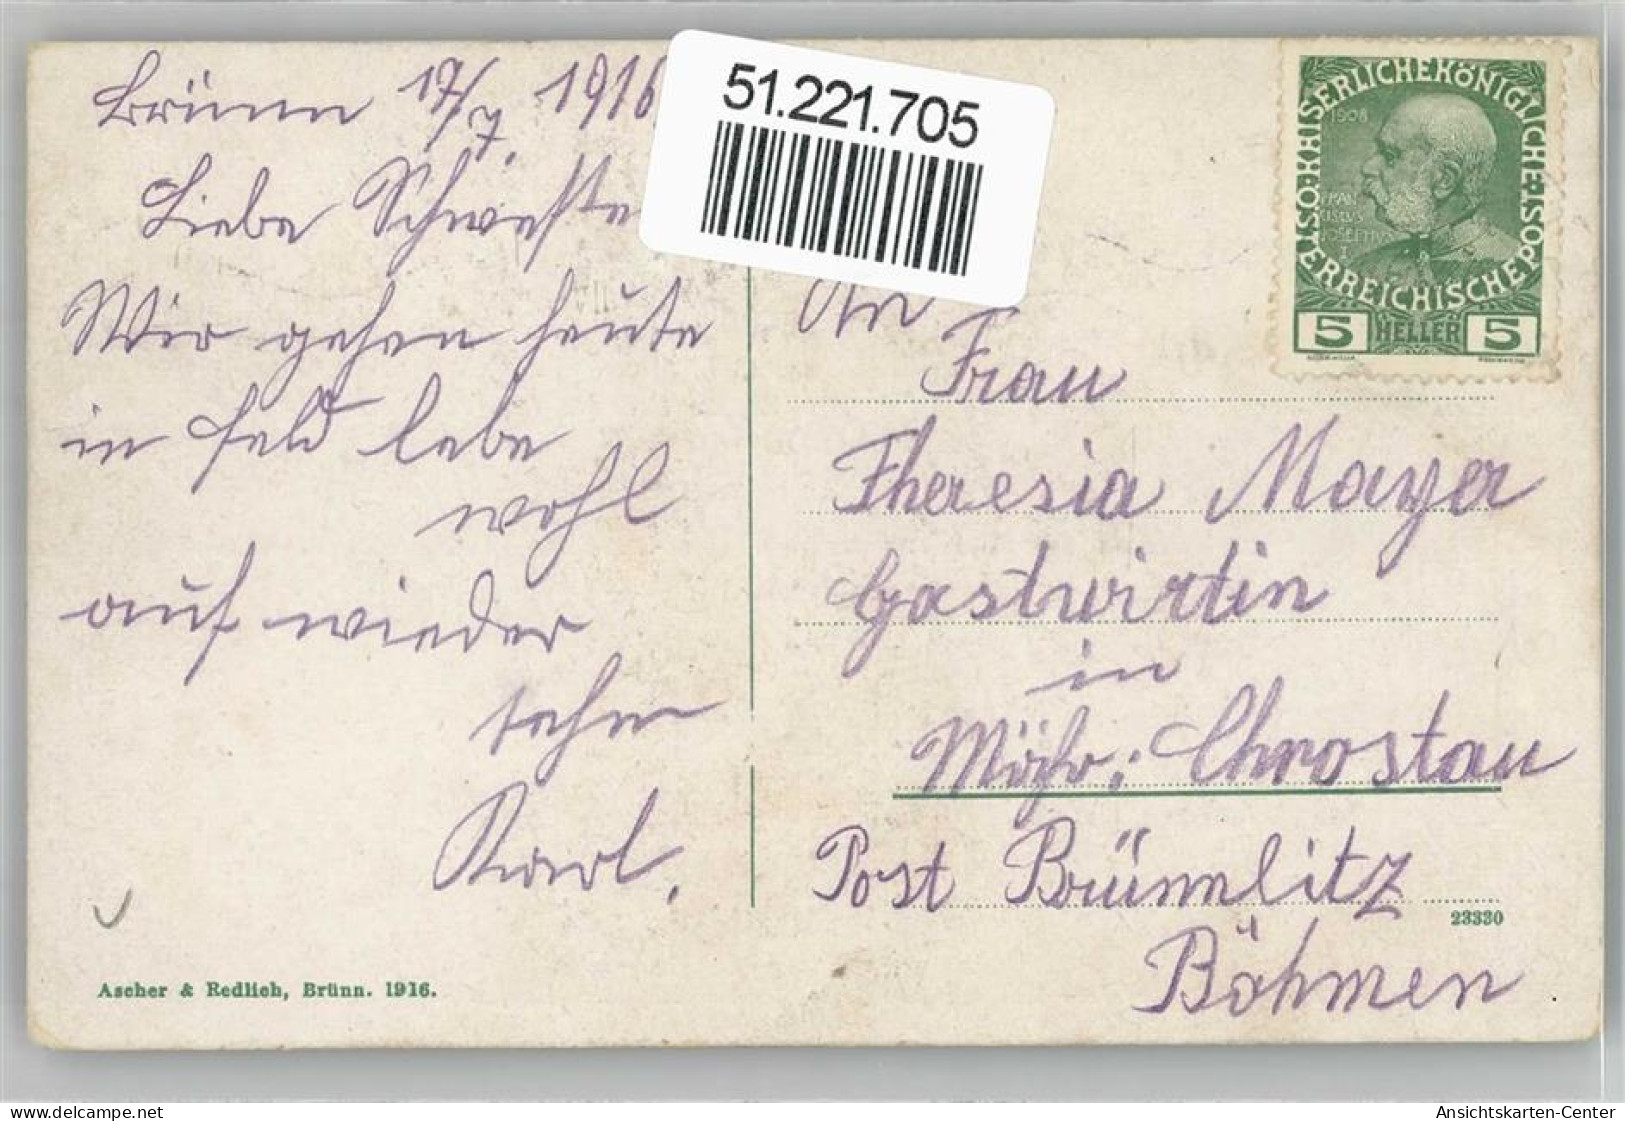 Brünn 17/7. 1916
Liebe Schweste
Wir gehen heute
in Feld lebe
wohl
auf wieder
sehn
Karl.
Ascher & Redlich, Brünn. 1916.
51.221.705
KAISERLICHE KÖNIGLICHE ÖSTERREICHISCHE POST
1908
5 HELLER 5
An
Frau
Theresia Mayer
Gastwirtin
in
Mähr: Chrostau
Post Brünnlitz
23330
Böhmen
delcampe.net
Ansichtskarten-Center